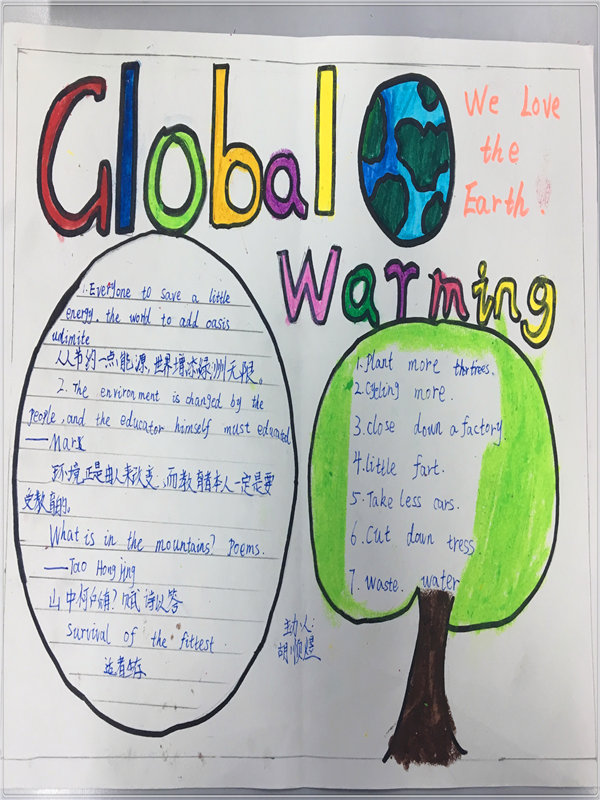 Global
We Love
the
Earth!
Warming
1. Everyone to save a little
energy, the world to add oasis
udimite
人人节约一点能源,世界增添绿洲无限。
2. The environment is changed by the
people, and the educator himself must educated
——Mark
环境正是由人来改变,而教育者本人一定是要
受教育的。
What is in the mountains? Poems.
——Tao Hong jing
山中何所有?赋诗以答
Survival of the fittest.
适者生存
1. Plant more trees.
2. Cycling more.
3. close down a factory
4. little fart.
5. Take less cars.
6. Cut down tress
7. waste. water
主办人:
胡顺煜